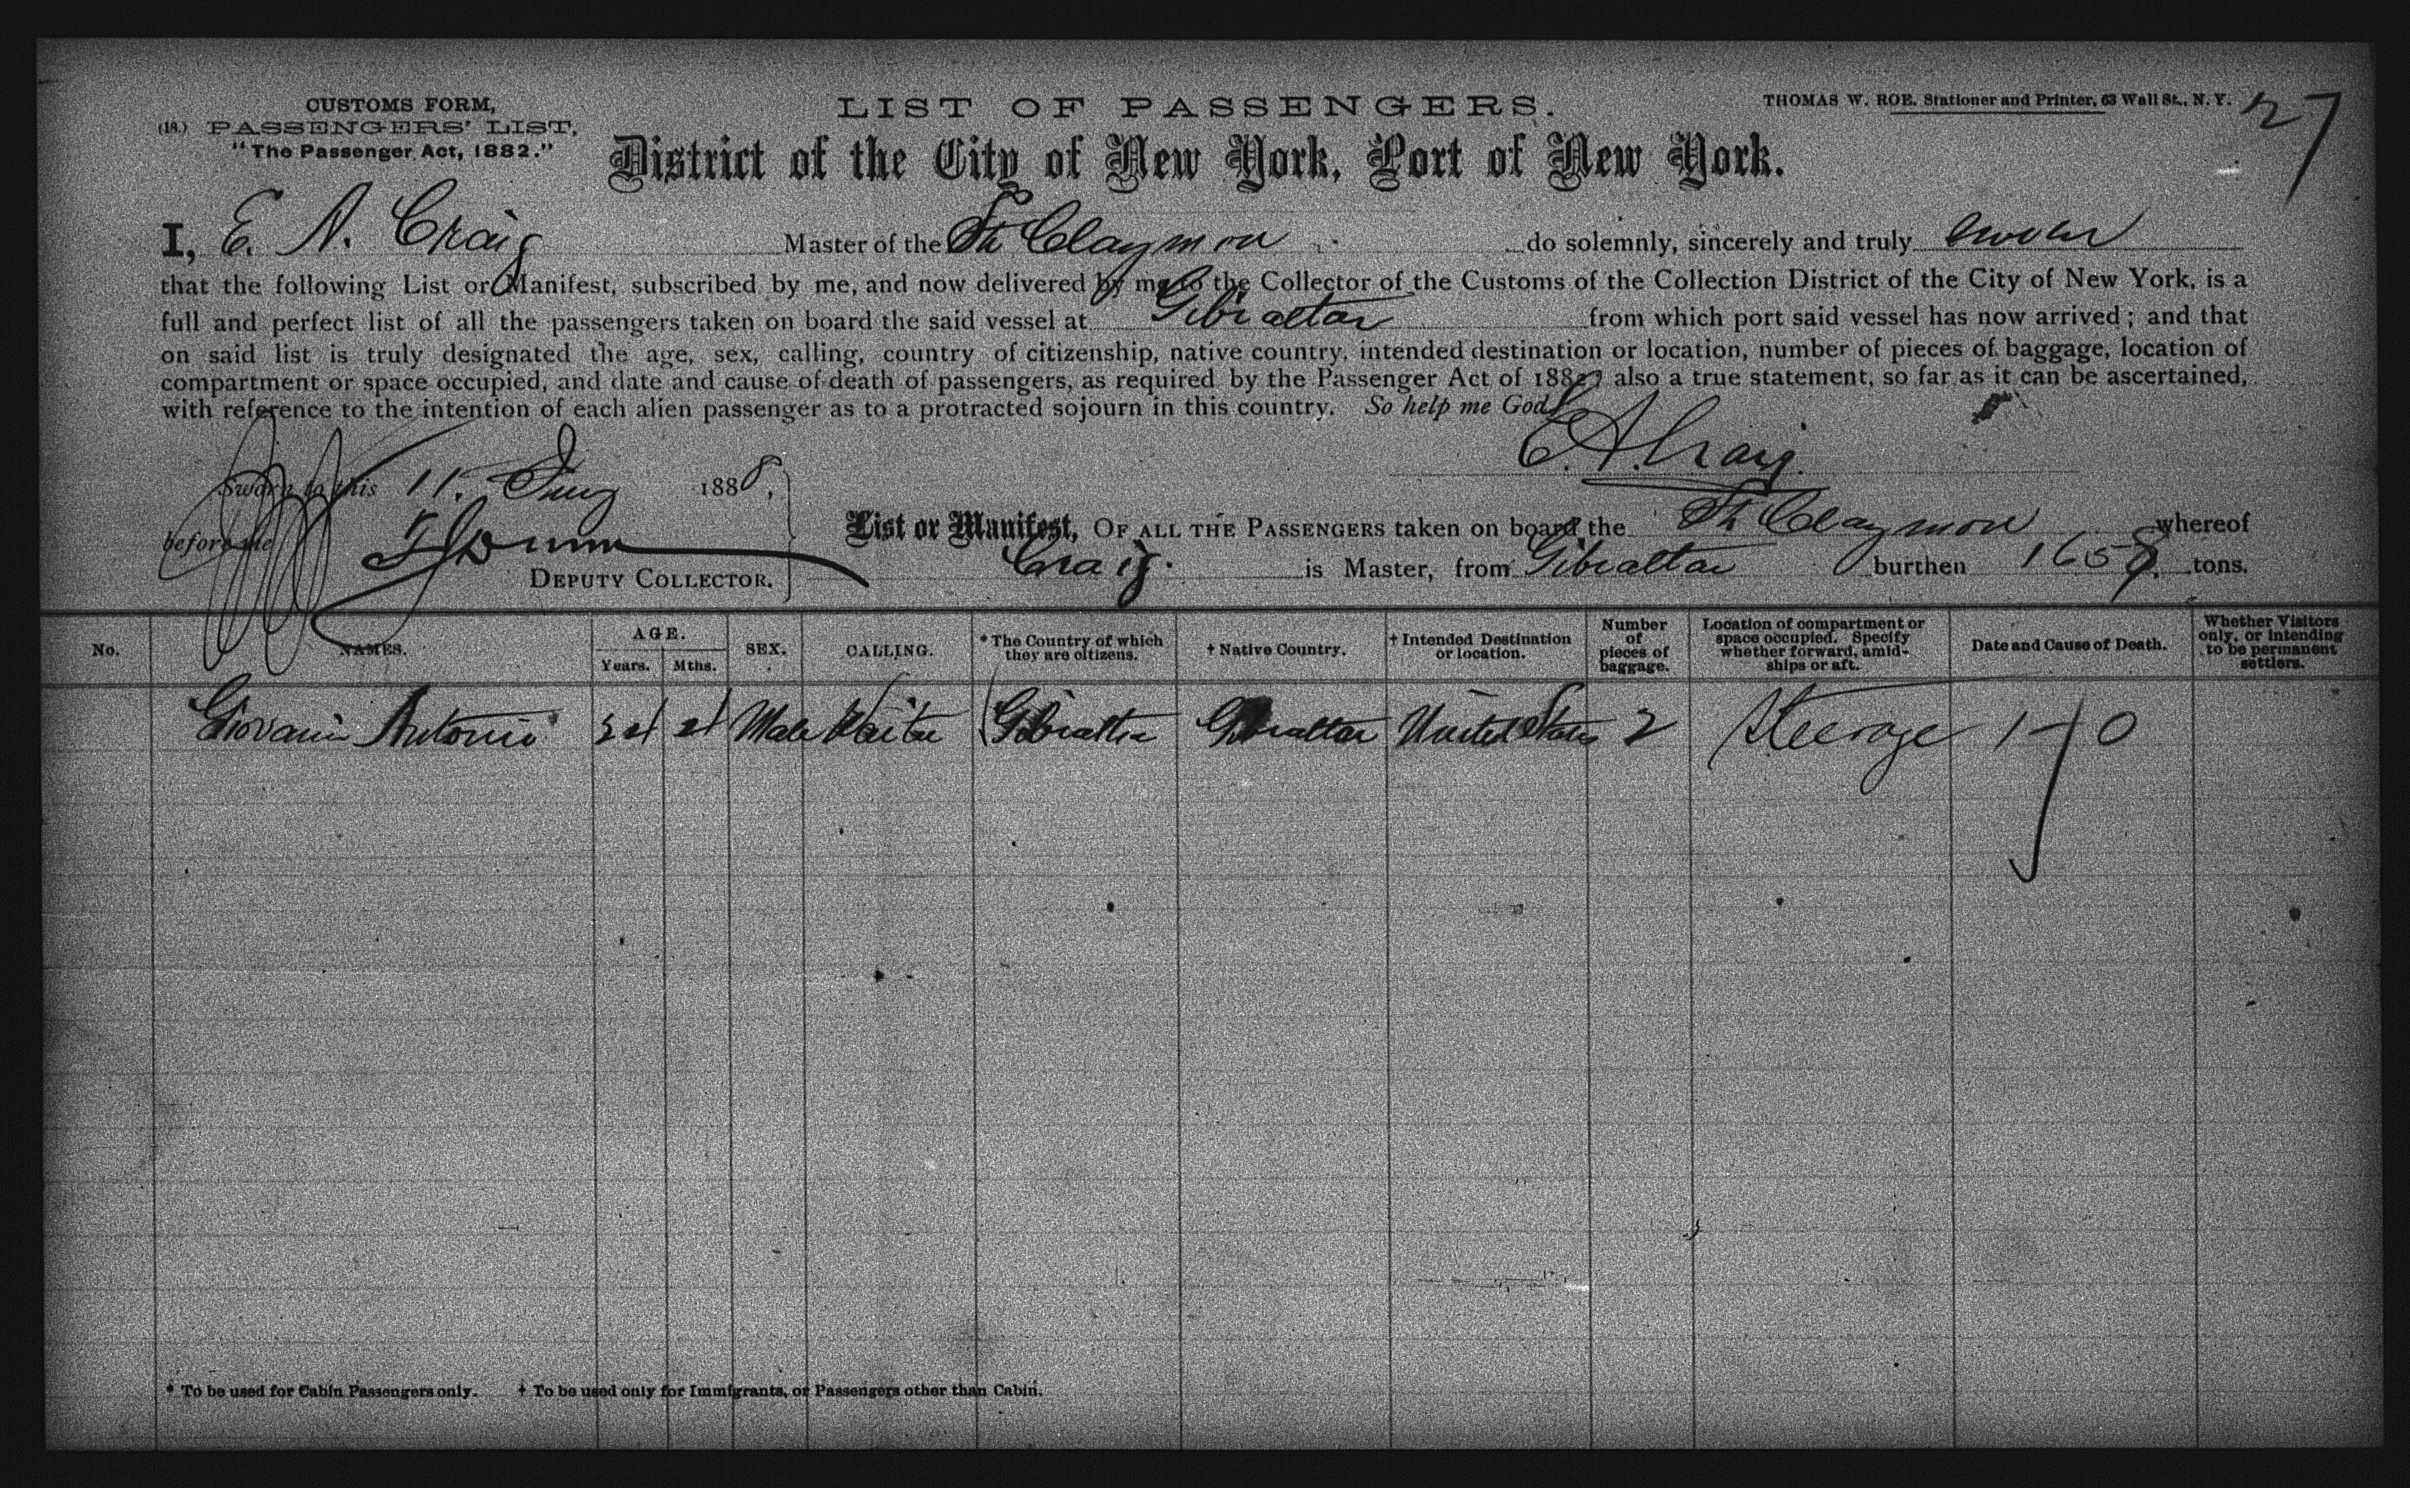 CUSTOMS FORM,
(18.) PASSENGERS' LIST,
"The Passenger Act, 1882."
LIST OF PASSENGERS.
THOMAS W. ROE, Stationer and Printer, 63 Wall St., N.Y.
27
District of the City of New York, Port of New York.
I, E. A. Craig Master of the Str Claymore do solemnly, sincerely and truly swear
that the following List or Manifest, subscribed by me, and now delivered by me to the Collector of the Customs of the Collection District of the City of New York, is a
full and perfect list of all the passengers taken on board the said vessel at Gibraltar from which port said vessel has now arrived; and that
on said list is truly designated the age, sex, calling, country of citizenship, native country, intended destination or location, number of pieces of baggage, location of
compartment or space occupied, and date and cause of death of passengers, as required by the Passenger Act of 1882; also a true statement, so far as it can be ascertained,
with reference to the intention of each alien passenger as to a protracted sojourn in this country. So help me God.
E. A. Craig.
Sworn to this 11. 1888,
before me
DEPUTY COLLECTOR.
List or Manifest, OF ALL THE PASSENGERS taken on board the Str Claymore whereof
Craig. is Master, from Gibraltar burthen 1658. tons.
No. NAMES. AGE. Years. Mths. SEX. CALLING. * The Country of which they are citizens. † Native Country. † Intended Destination or location. Number of pieces of baggage. Location of compartment or space occupied. Specify whether forward, amidships or aft. Date and Cause of Death. Whether Visitors only, or intending to be permanent settlers.
Giovanni Antonio Male Gibraltar Gibraltar United States 2 Steerage 1 - 0
* To be used for Cabin Passengers only. † To be used only for Immigrants, or Passengers other than Cabin.